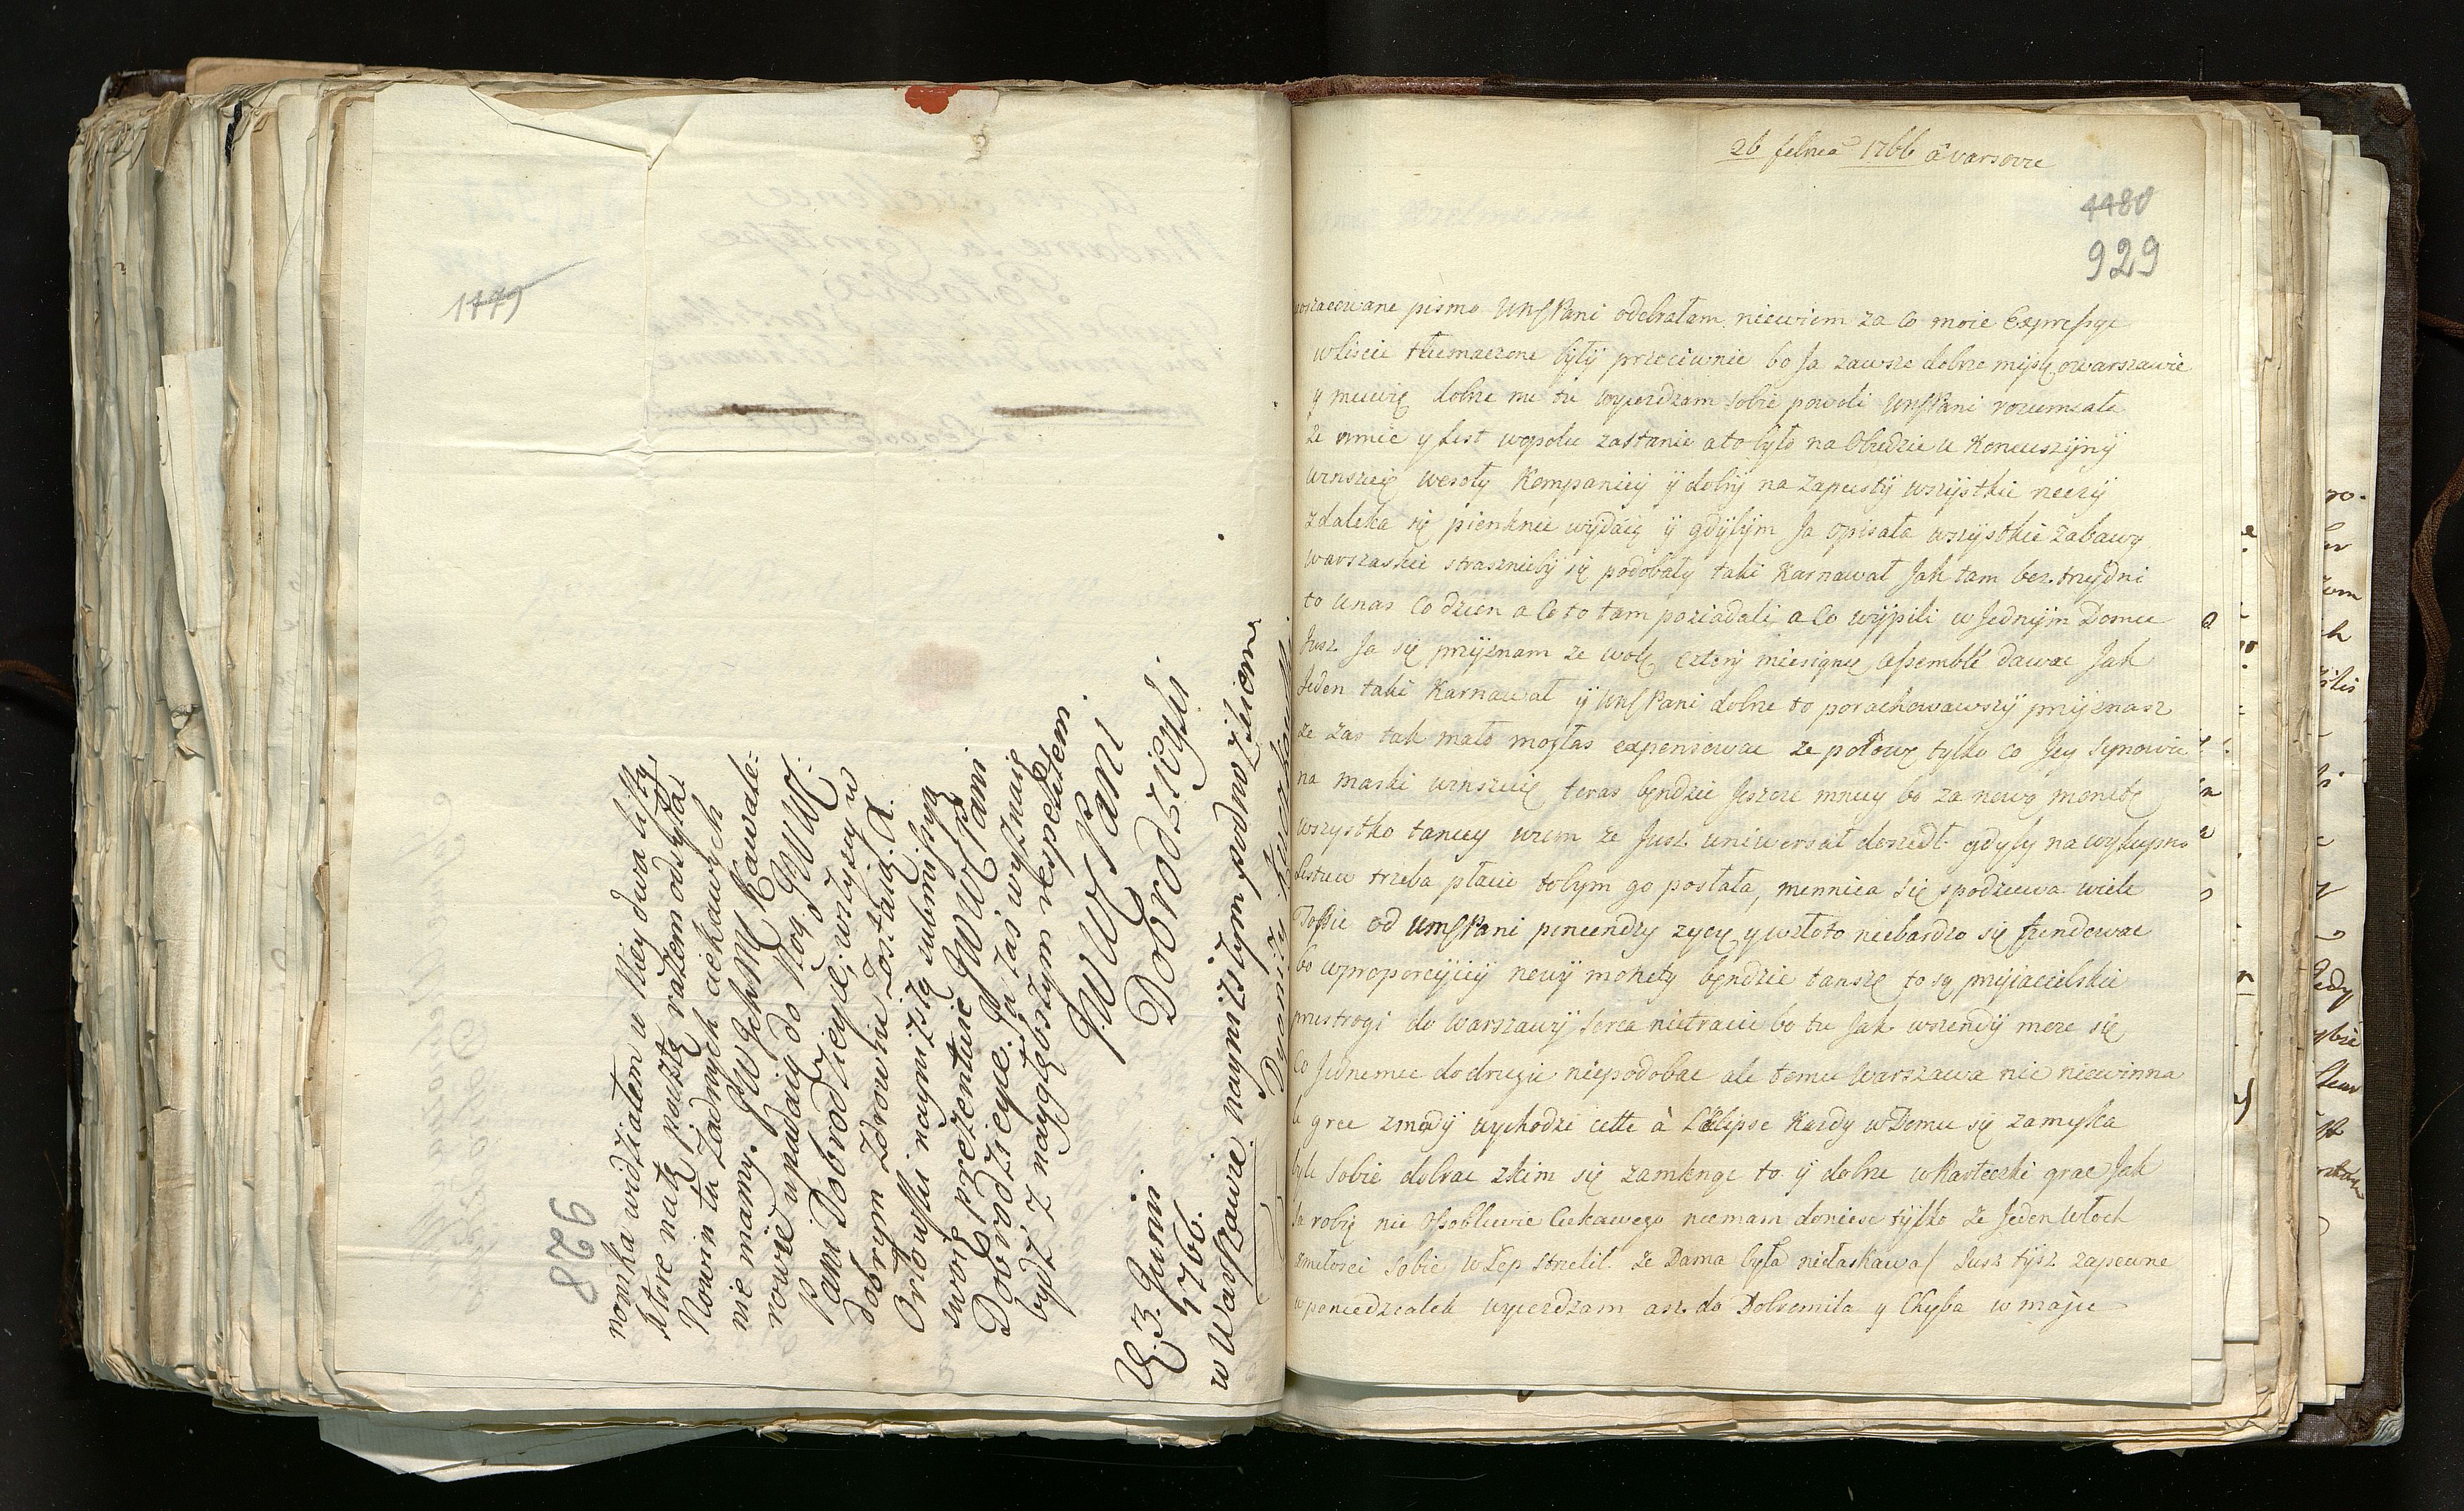 1479
928
nowska widziałem u Niey dwa listy,
ktore na tę pocztę razem odbyła.
Nowin tu żadnych ciekawych
nie mamy. JW Jchm Kawale-
rowie upadaią do Nog JWW.
Pani Dobrodzieyce; wszyscy w
dobrym zdrowiu zostaią. X.
Orłowski naynizszą submissyą
swoię prezentuie JWWPani
Dobrodzieyce. Ja zaś wyznaię
bydz z naygłębszym respektem
JWWPani
Dobrodzieyki
D. 3. Junii
1766.
w Warszawie naynizszym podnożkiem
26 1766 à varsovie
1480
929
pismo WMPani odebrałam niewiem za co moie Expressye
w liscie tłumaczone były przeciwnie bo Ja zawsze dobrze myslę o warszawie
y muwię dobrze mi tu wyierdzam sobie powoli WMPani rozumiała
ze y Jest wopolu zastanie a to było na Obiedzie u Koniuszyny
wesoły Kompaniiy y dobry na Zapusty wszystkie rzeczy
zdaleka się pienknie wydaię y gdybym Ja opisała wszystkie zabawy
warszaskie strasznieby się podobały taki Karnawał Jak tam bez trzydni
to unas Co dzien a Co to tam poziadali, a Co wypili w Jednym Domu
Jusz Ja się przyznam ze wolę cztery miesiące assemble dawac Jak
Jeden taki Karnawał y WMPani dobrze to porachowawszy przyznasz
ze zas tak mało mogłas expensowac ze połowę tylko co Jey Synowie
na maski teras bęndzie Jeszcze mniey bo za nową monetę
wszystko taniey wiem ze Jusz uniwersał doszedł gdyby na wykupno
Listuw trzeba płacic tobym go posłała, mennica się spodziewa wiele
od WMPani piniendzy zycę y w złoto niebardzo się fundowac
bo wproporcyiey nowy monety bęndzie tansze to są przyiacielskie
przestrogi do Warszawy serca nietracic bo tu Jak wszendy moze się
Co Jednemu do drugie niepodobac ale temu Warszawa nic niewinna
gree zmody wychodzi cette à Kazdy w Domu się zamyka
byle sobie dobrac zkim się zamknąc to y dobrze w Karteczki grac Jak
Ja robię nic Ossobliwie Ciekawego niemam doniesc tylko ze Jeden Włoch
zmiłosci sobie w Łep strzelił ze Dama była niełaskawa/ Jusz tysz zapewne
w poniedziałek wyierdzam asz do Dobromila y Chyba w maju